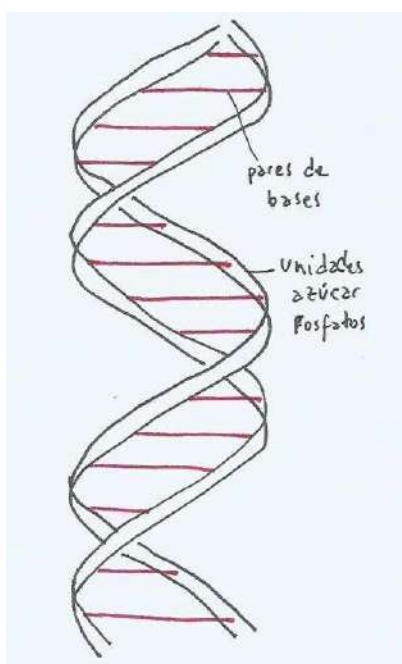 pares de
bases
unidades
azúcar
fosfatos